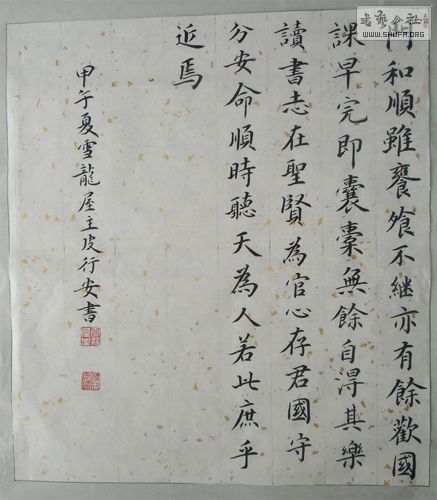 門和順雖饔飧不繼亦有餘歡國
課早完即囊橐無餘自得其樂
讀書志在聖賢為官心存君國守
分安命順時聽天為人若此庶乎
近焉
甲午夏雪龍屋主皮行安書
WWW.SHUFA.ORG